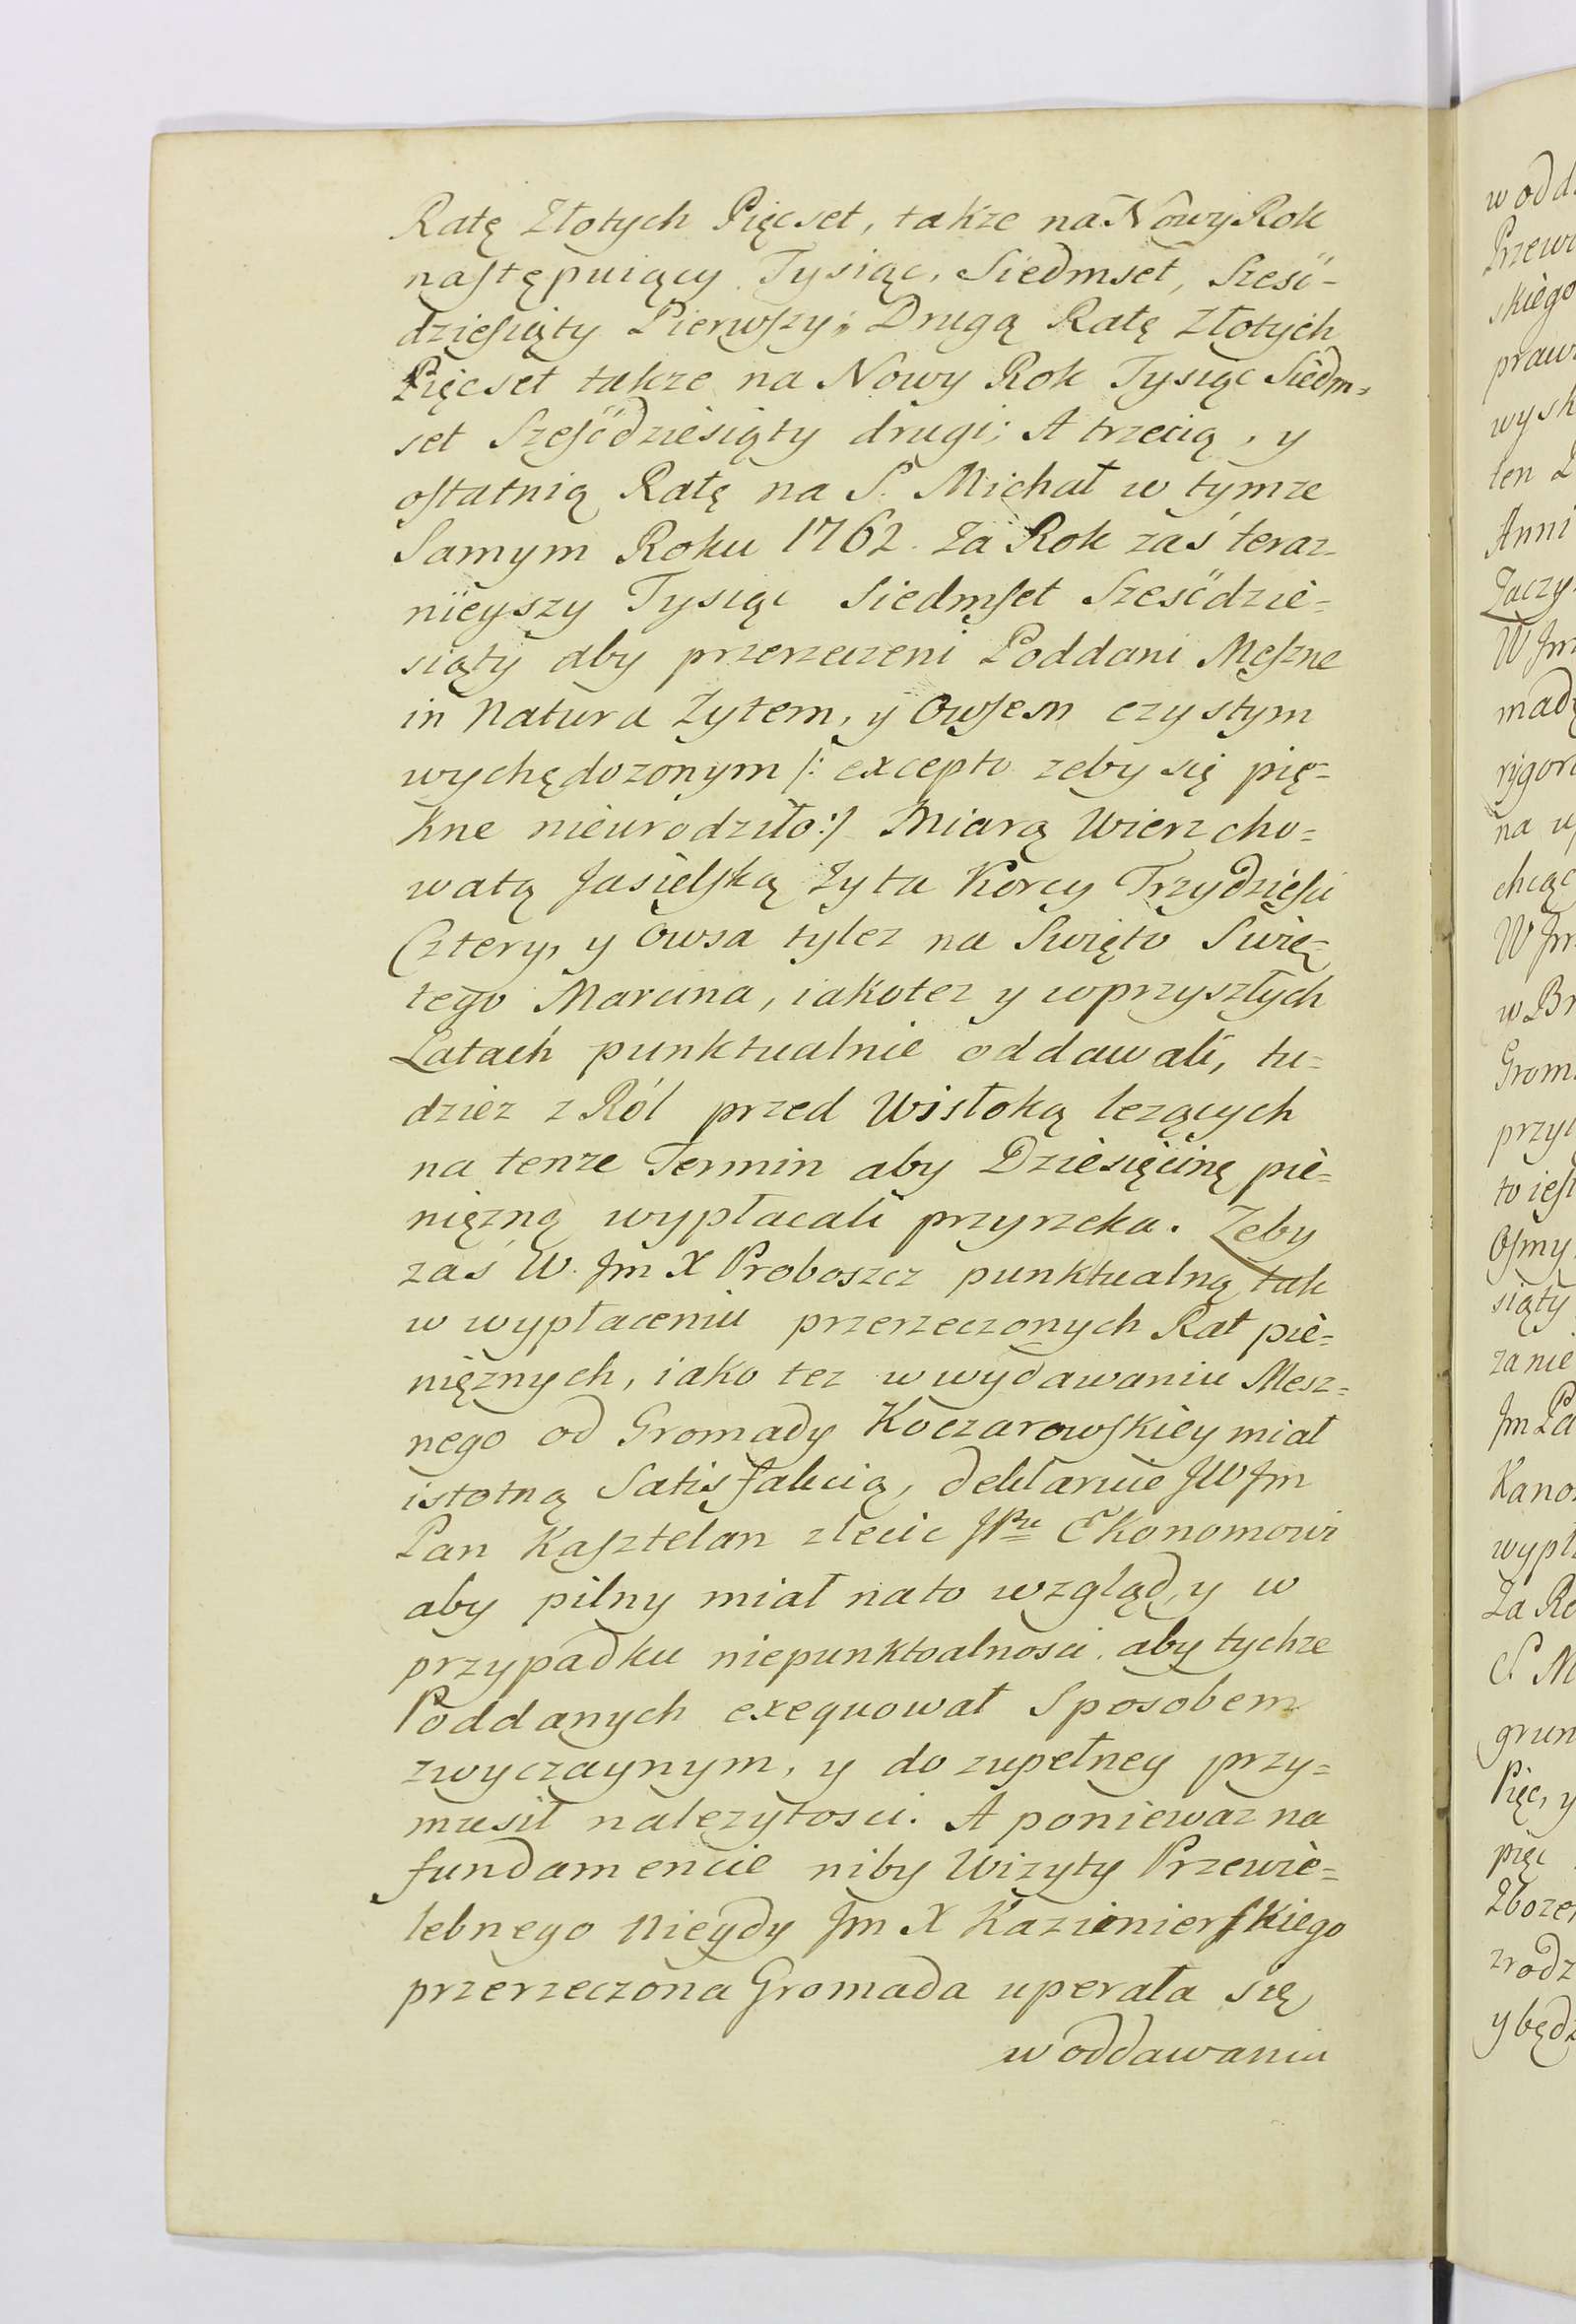 Ratę Złotych Pięcset, takze na Nowy Rok
następuiący Tysiąc, Siedmset, Sześć-
dziesiąty Pierwszy; Drugą Ratę Złotych
Pięcset takze na Nowy Rok Tysiąc Siedm=
set Sześćdziesiąty drugi; A trzecią, y
ostatnią Ratę na S. Michał w tymze
Samym Roku 1762. Za Rok zaś teraz-
nieyszy Tysiąc Siedmset Sześćdzie=
siąty aby przerzeczeni Poddani Meszne
in Natura Zytem, y Owsem czystym
wychędozonym /: excepto zeby się pię=
kne nieurodziło:/ Miarą Wierzcho=
watą Jasielską Zyta Korcy Trzydzieści
Cztery, y Owsa tylez na Swięto Swię=
tego Marcina, iakotez y wprzyszłych
Latach punktualnie oddawali, tu=
dziez z Ról przed Wisłoką lezących
na tenze Termin aby Dziesięcinę pie=
niężną wypłacali przyrzeka. Zeby
zaś W. Jm X Proboszcz punktualną tak
w wypłaceniu przerzeczonych Rat pie=
niężnych, iako tez w wydawaniu Mesz=
nego od Gromady Koczarowskiey miał
istotną Satisfakcią, deklaruie JW Jm
Pan Kasztelan zlecic JPu Ekonomowi
aby pilny miał na to wzgląd, y w
przypadku niepunktoalnosci, aby tychze
Poddanych exequował Sposobem
zwyczaynym, y do zupełney przy=
musił nalezytosci. A poniewaz na
fundamencie niby Wizyty Przewie=
lebnego Niegdy Jm X Kazimierskiego
przerzeczona Gromada uperała się
w oddawaniu